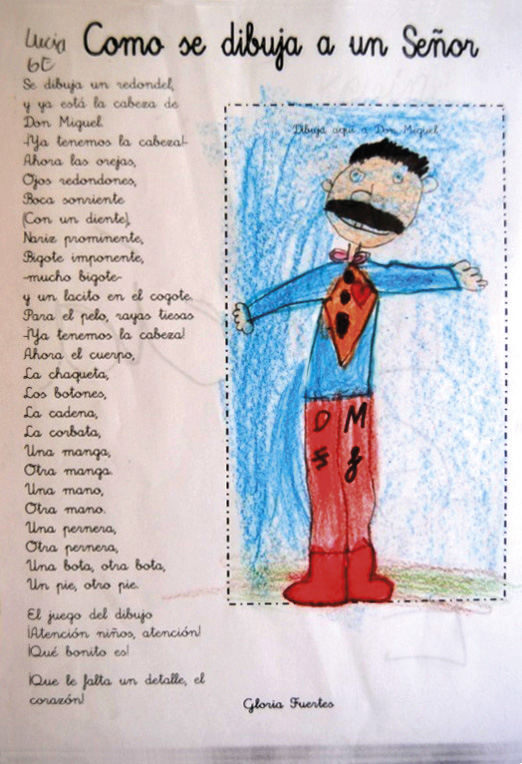 Lucia
6E
Como se dibuja a un Señor
Se dibuja un redondel,
y ya está la cabeza de
Don Miguel
-¡Ya tenemos la cabeza!-
Ahora las orejas,
Ojos redondones,
Boca sonriente
(Con un diente),
Nariz prominente,
Bigote imponente,
-mucho bigote-
y un lacito en el cogote.
Para el pelo, rayas tiesas
-¡Ya tenemos la cabeza!
Ahora el cuerpo,
La chaqueta,
Los botones,
La cadena,
La corbata,
Una manga,
Otra manga.
Una mano,
Otra mano.
Una pernera,
Otra pernera,
Una bota, otra bota,
Un pie, otro pie.
El juego del dibujo
¡Atención niños, atención!
¡Qué bonito es!
¡Que le falta un detalle, el
corazón!
Dibuja aquí a Don Miguel
D M
Gloria Fuertes